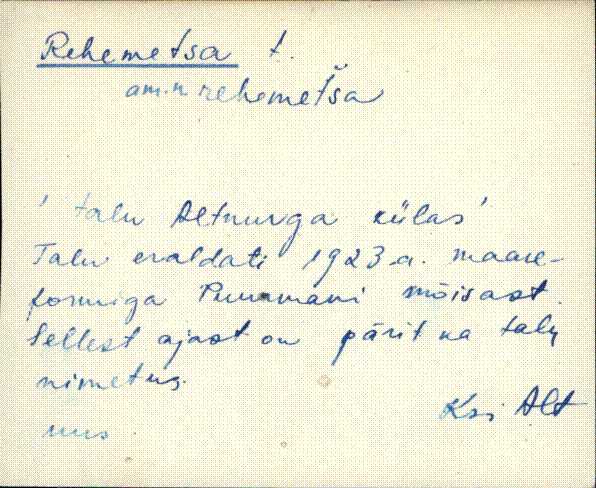 Rehemetsa t.
am.n rehemeťša
' talu Altnurga külas'
Talu eraldati 1923-a. maare-
formiga Puurmani mõisast.
Sellest ajast on pärit ka talu
nimetus.
Ksi Alt
uus